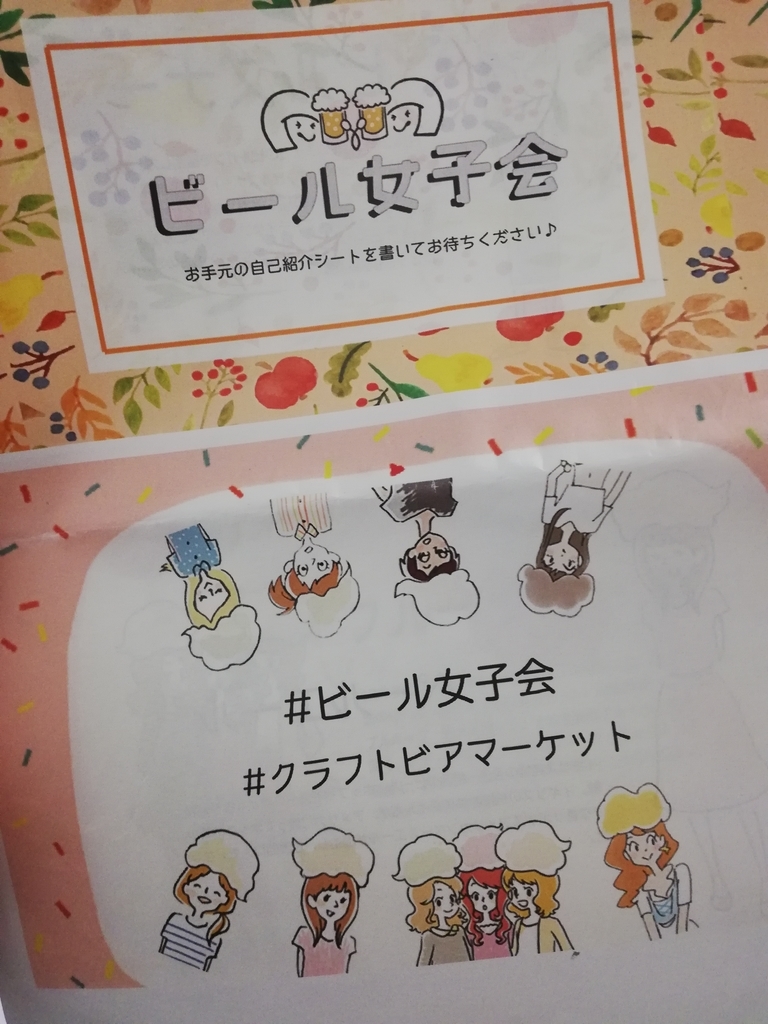 ビール女子会
お手元の自己紹介シートを書いてお待ちください♪
#ビール女子会
#クラフトビアマーケット